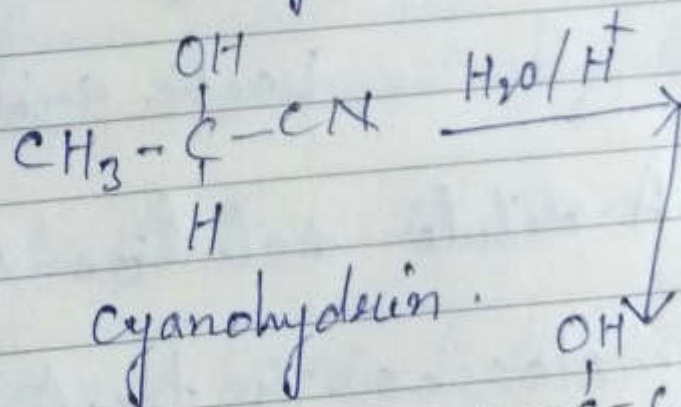 OH
CH₃-C-CN H₂O/H⁺
H
cyanohydrin.
OH